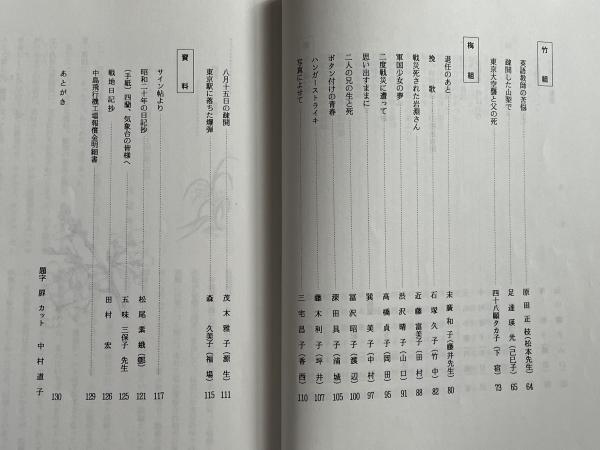 竹組
英語教師の苦悩 原田正枝(松本先生) 64
疎開した山梨で 足達瑛光(己巳子) 65
東京大空襲と父の死 四十八願タカ子(下宿) 73
梅組
退任のあと 末廣和子(藤井先生) 80
挽歌 石塚久子(竹中) 82
戦災死された岩淵さん 近藤富美子(田村) 88
軍国少女の夢 渋沢晴子(山口) 91
二度戦災に遭って 高橋貞子(岡田) 95
思い出すままに 巽美子(中村) 97
二人の兄の生と死 冨沢昭子(渡辺) 100
ボタン付けの青春 深田具子(浦城) 105
ハンガーストライキ 藤木利子(坪井) 107
写真によせて 三宅昌子(香西) 110
八月十五日の疎開 茂木雅子(源生) 111
東京駅に落ちた爆弾 森久美子(相場) 115
資料
サイン帖より 117
昭和二十年の日記抄 松尾素娥 121
(手紙)四蘭、気象台の皆様へ 五味三保子先生 125
戦地日記抄 田村宏 126
中島飛行機工場報償金明細書 129
あとがき 130
題字 扉 カット 中村道子